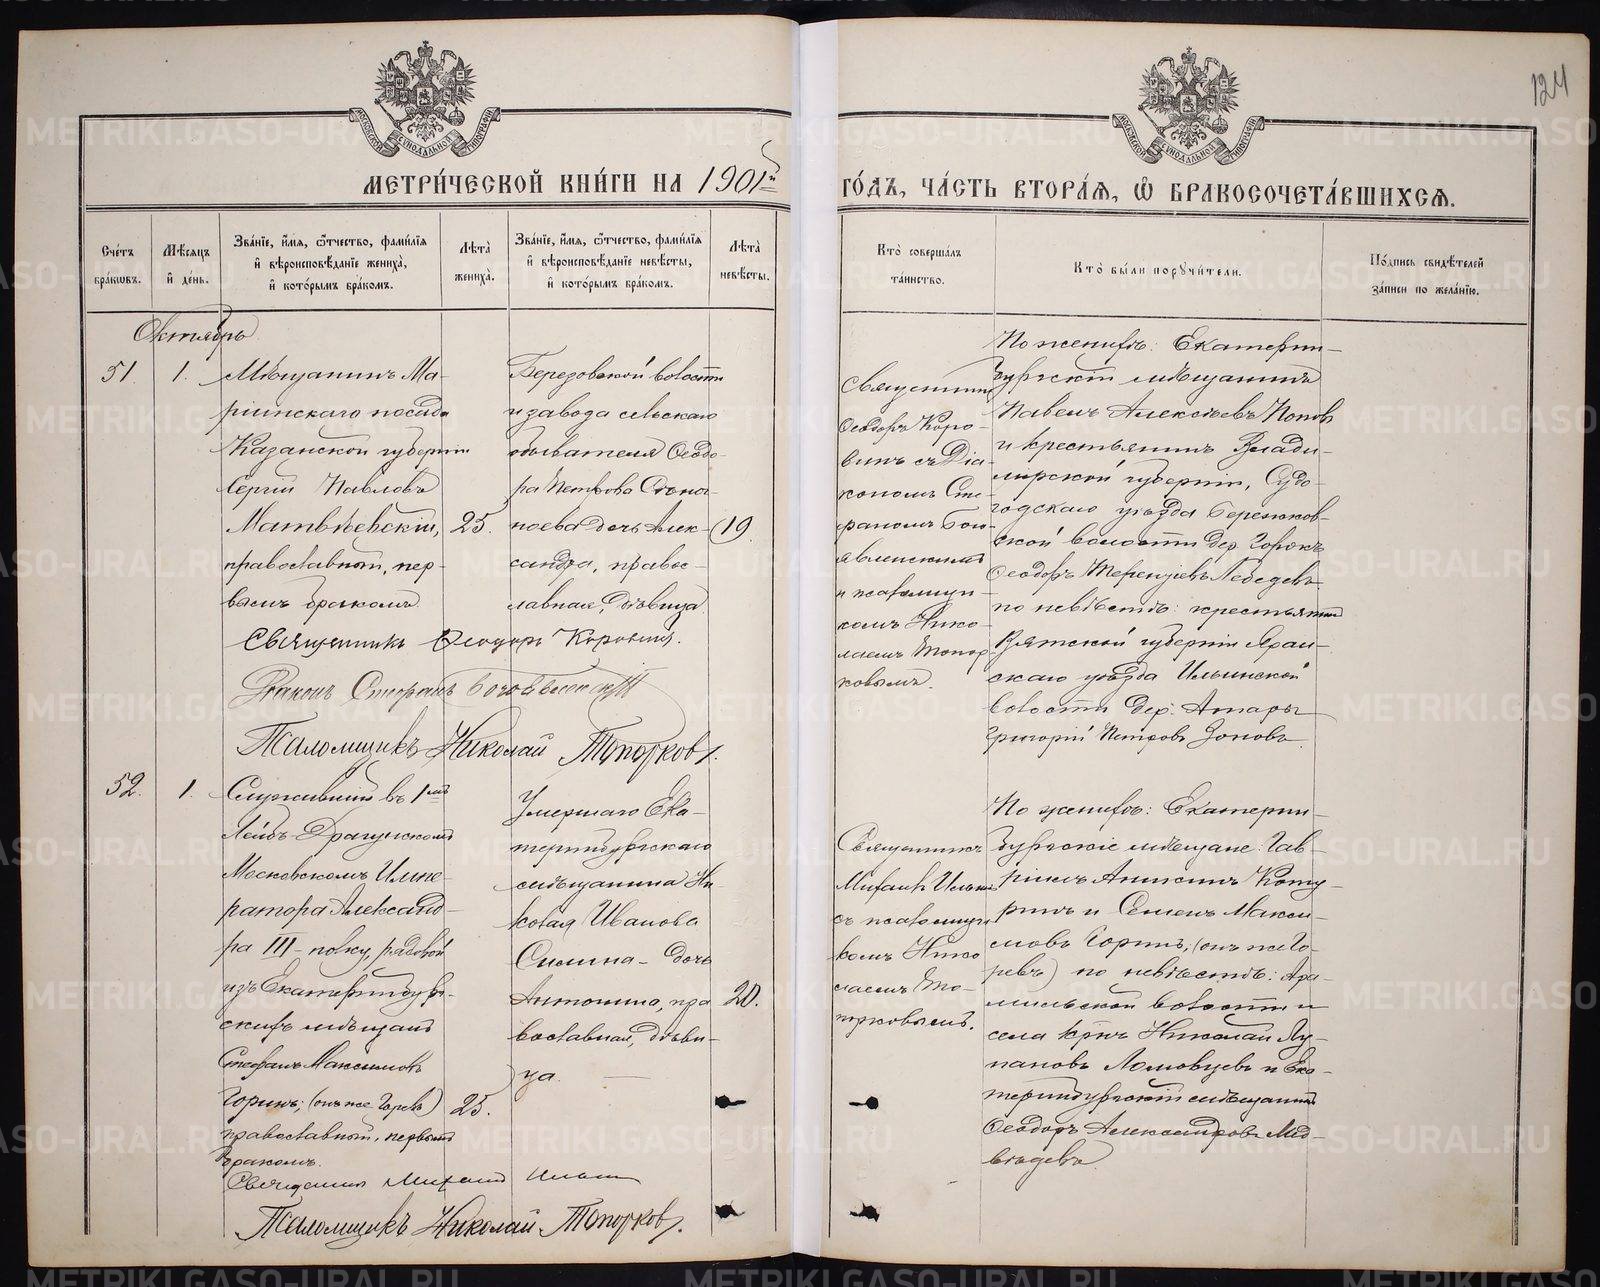 124
МЕТРИ́ЧЕСКОЙ КНИ́ГИ НА 1901й
ГО́ДЪ, ЧА́СТЬ ВТОРА́Я, Ѽ БРАКОСОЧЕТА́ВШИХСЯ.
Сче́тъ бра́кѡвъ.
Мѣ́сяцъ и҆ де́нь.
Зва́нїе, и҆́мя, ѻ҆́тчество, фами́лїя
и҆ вѣроисповѣ́данїе жениха̀,
и҆ кото́рымъ бра́комъ.
Лѣта̀ жениха̀.
Зва́нїе, и҆́мя, ѻ҆́тчество, фами́лїя
и҆ вѣроисповѣ́данїе невѣ́сты,
и҆ кото́рымъ бра́комъ.
Лѣта̀ невѣ́сты.
Кто̀ соверша́лъ
та́инство.
Кто̀ бы́ли порꙋчи́тели.
По́дпись свидѣ́телей
за́писи по жела́нїю.
Октябрь
51.
1.
Мѣщанинъ Ма-
ріинскаго посада
Казанской губерніи
Сергій Павловъ
Матвѣевскій,
православный, пер-
вымъ бракомъ.
25.
Березовской волости
и завода сельскаго
обывателя Ѳеодо-
ра Петрова
дочь Алек-
сандра, правос-
лавная, дѣвица.
19
Священникъ
Ѳеодоръ Коро-
винъ съ Діа-
кономъ Сте-
фаномъ Бого-
явленскимъ
и псаломщи-
комъ Нико-
лаемъ Топор-
ковымъ.
По женихѣ: Екатерин-
бургскій мѣщанинъ
Павелъ Алексѣевъ Поповъ
и крестьянинъ Влади-
мірской губерніи, Судо-
годскаго уѣзда
ской волости дер. Горокъ
Ѳеодоръ Терентьевъ Лебедевъ
по невѣстѣ: крестьянинъ
Вятской губерніи Яран-
скаго уѣзда Ильинской
волости дер. Атары
Григорій Петровъ Зоновъ.
Священникъ Ѳеодоръ Коровинъ.
Діаконъ Стефанъ Богоявленскій
Псаломщикъ Николай Топорковъ.
52.
1.
Служившій въ 1мъ
Лейбъ-Драгунскомъ
Московскомъ Импе-
ратора Александ-
ра III- полку, рядовой
изъ Екатеринбург-
скихъ мѣщанъ
Стефанъ Максимовъ
Горинъ; (онъ же Горевъ)
православный, первымъ
бракомъ.
25.
Умершаго Ека-
теринбургскаго
мѣщанина Ни-
колая Иванова
Силина - дочь
Антонина, пра
вославная, дѣви-
ца.
20.
Священникъ
Михаилъ Ильинъ
съ псаломщи
комъ Нико
лаемъ То-
порковымъ.
По женихѣ: Екатерин-
бургскіе мѣщане: Гав-
ріилъ Анисимъ
и Семенъ Макси-
мовъ Горинъ; (онъ же Го-
ревъ) по невѣстѣ: Ара-
мильской волости и
села крнъ Николай Лу-
пановъ Ломовцевъ и Ека-
теринбургскій мѣщанинъ
Ѳеодоръ Александровъ Мед-
вѣдевъ.
Священникъ Михаилъ Ильинъ
Псаломщикъ Николай Топорковъ.